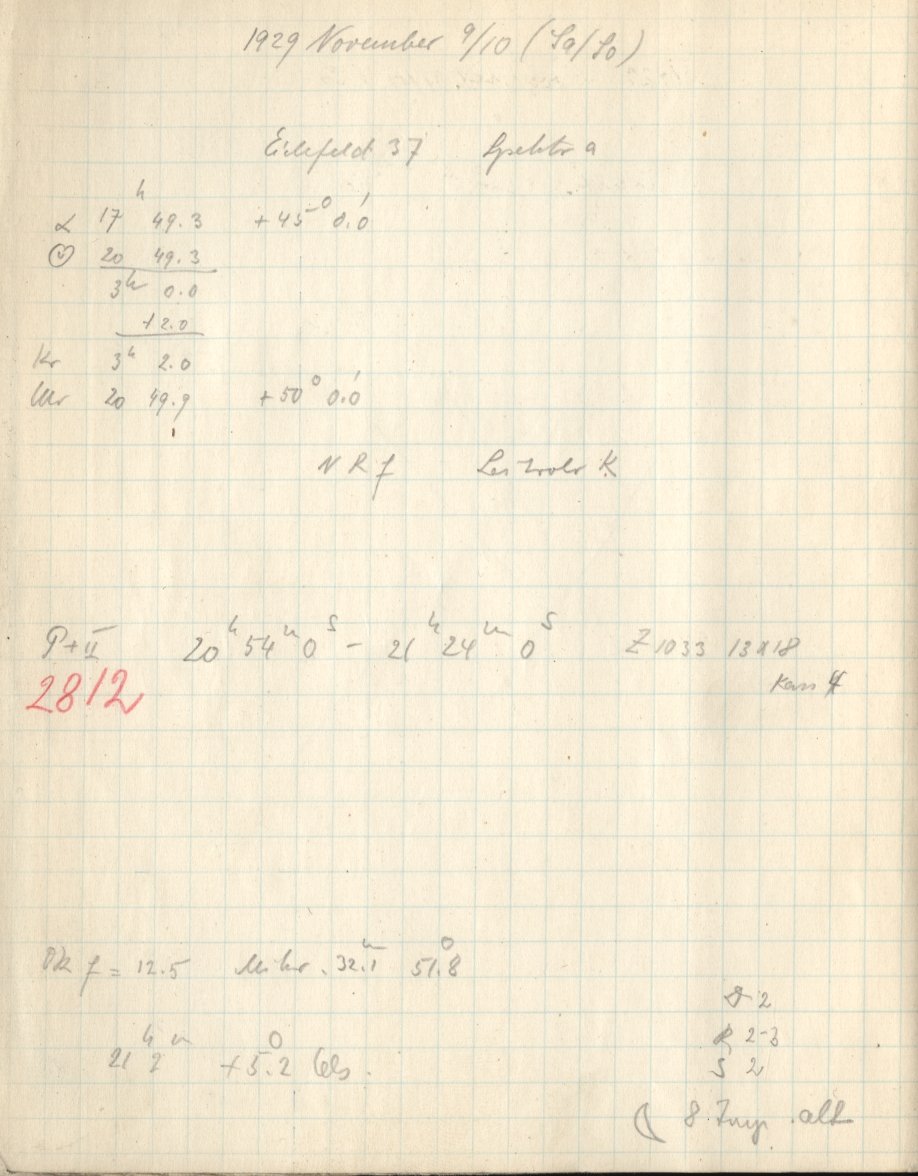 1929 November 9/10 (Sa/So)
Eichfeld 37 Spektra
α 17ʰ 49.3 +45° 0.'0
20 49.3
3ʰ 0.0
+2.0
Kr 3ʰ 2.0
Uhr 20 49.9 +50° 0.'0
N R f Leitrohr K
P+II 20ʰ 54ᵐ 0ˢ - 21ʰ 24ᵐ 0ˢ Z 1033 13x18
2812 Kass 4
f = 12.5 Mikr. 32.1 51.8
D 2
21ʰ 2ᵐ +5.2° Cels. R 2-3
S 2
☾ 8 Tage alt